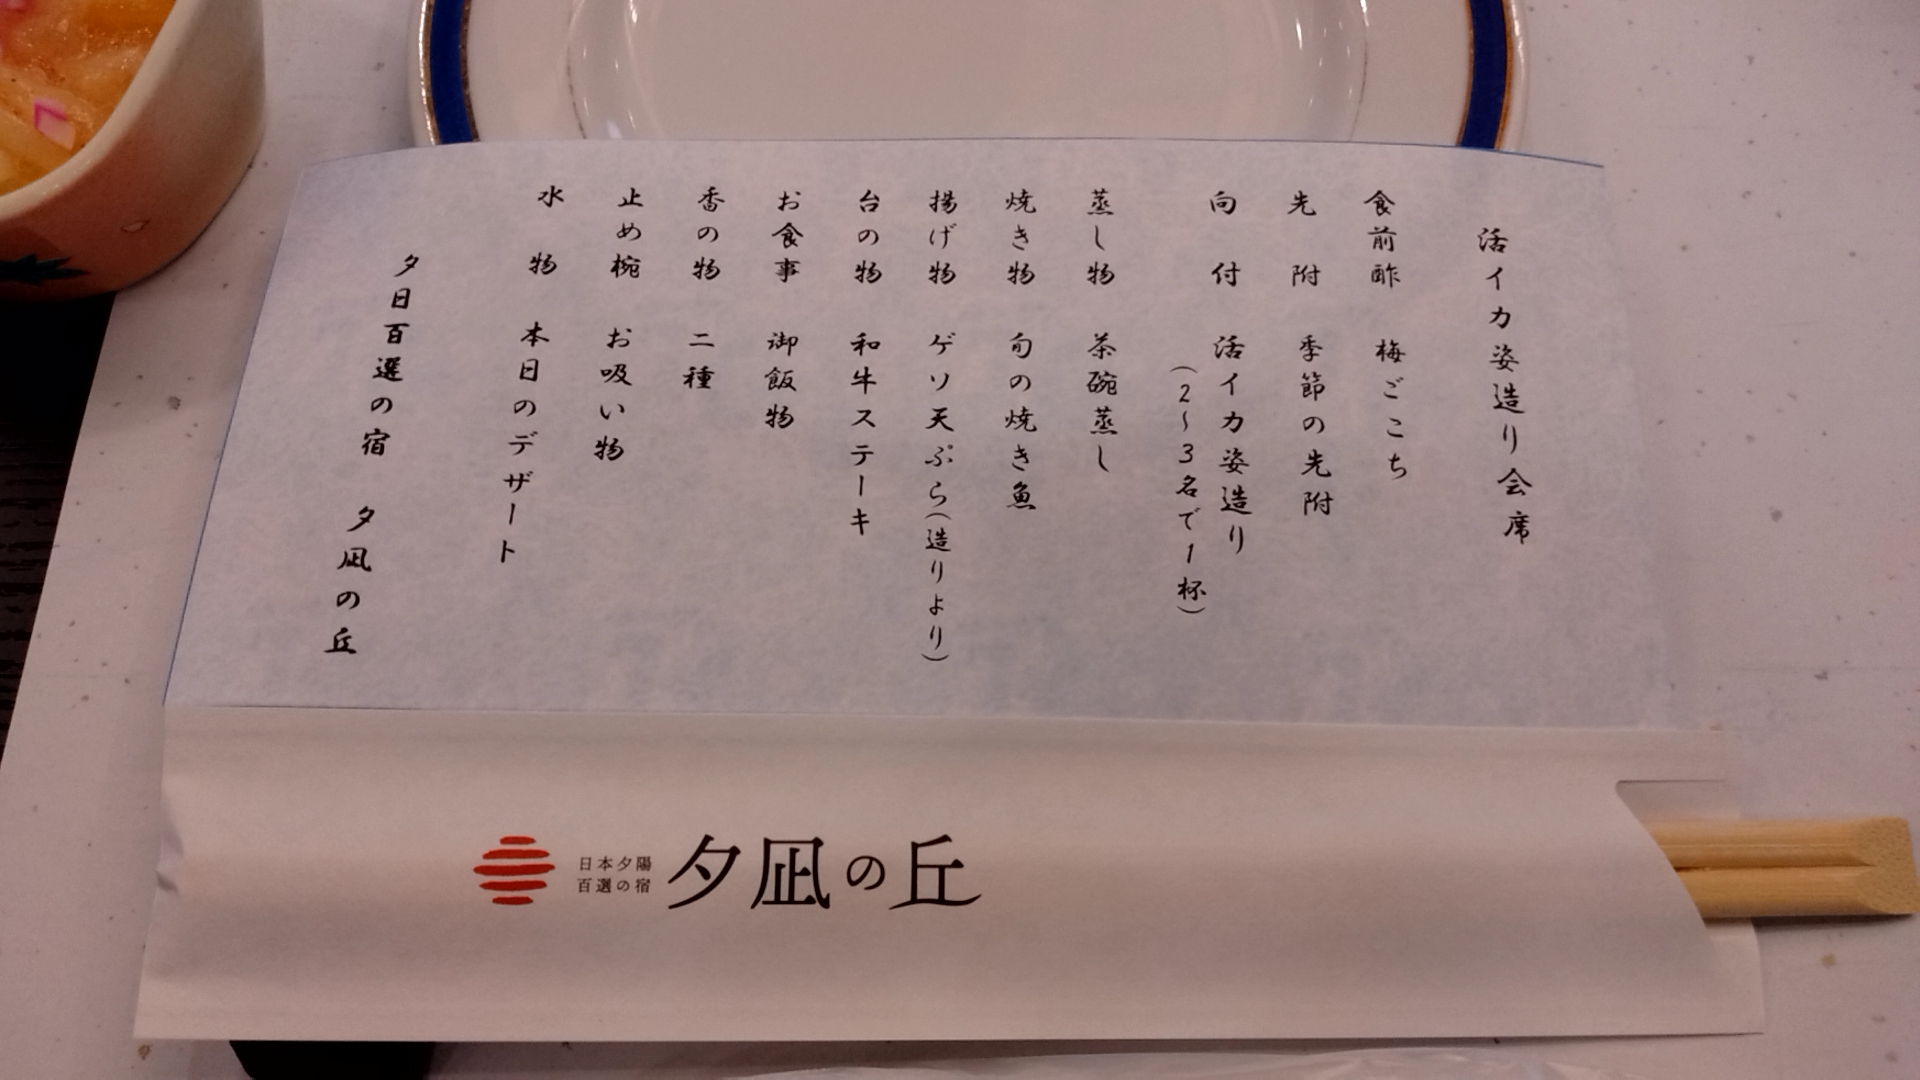 活イカ姿造り会席
食前酢　梅ごこち
先附　季節の先附
向付　活イカ姿造り
（2～3名で1杯）
蒸し物　茶碗蒸し
焼き物　旬の焼き魚
揚げ物　ゲソ天ぷら（造りより）
台の物　和牛ステーキ
お食事　御飯物
香の物　二種
止め椀　お吸い物
水物　本日のデザート
夕日百選の宿　夕凪の丘
日本夕陽
百選の宿
夕凪の丘